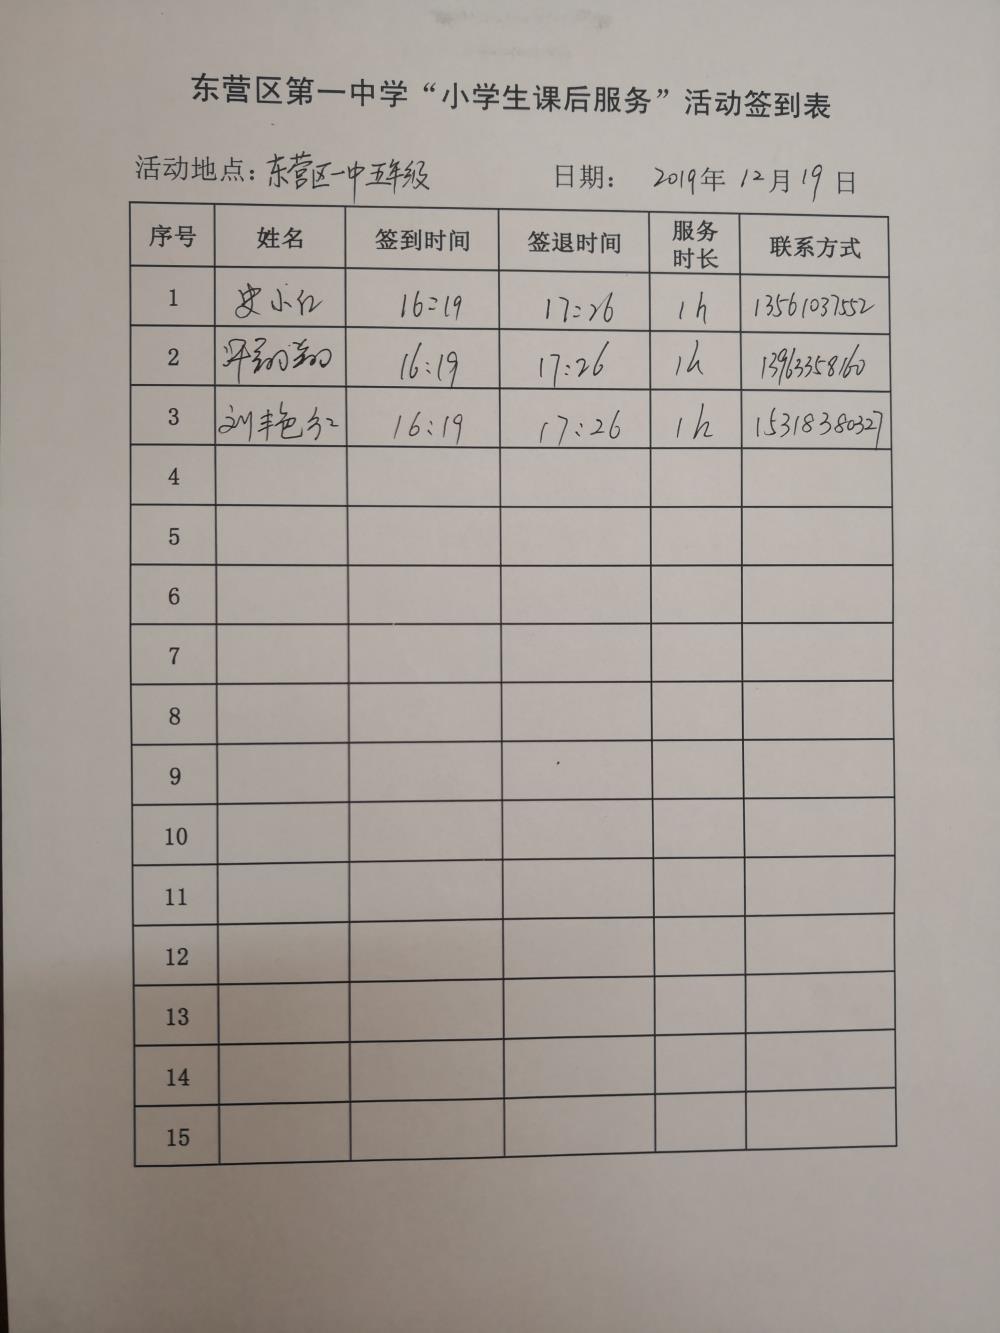 东营区第一中学“小学生课后服务”活动签到表
活动地点：东营区一中五年级 日期： 2019年12月19日
序号 姓名 签到时间 签退时间 服务时长 联系方式
1 史小红 16:19 17:26 1h 13561037552
2 16:19 17:26 1h 13963358160
3 刘艳红 16:19 17:26 1h 15318380327
4
5
6
7
8
9
10
11
12
13
14
15